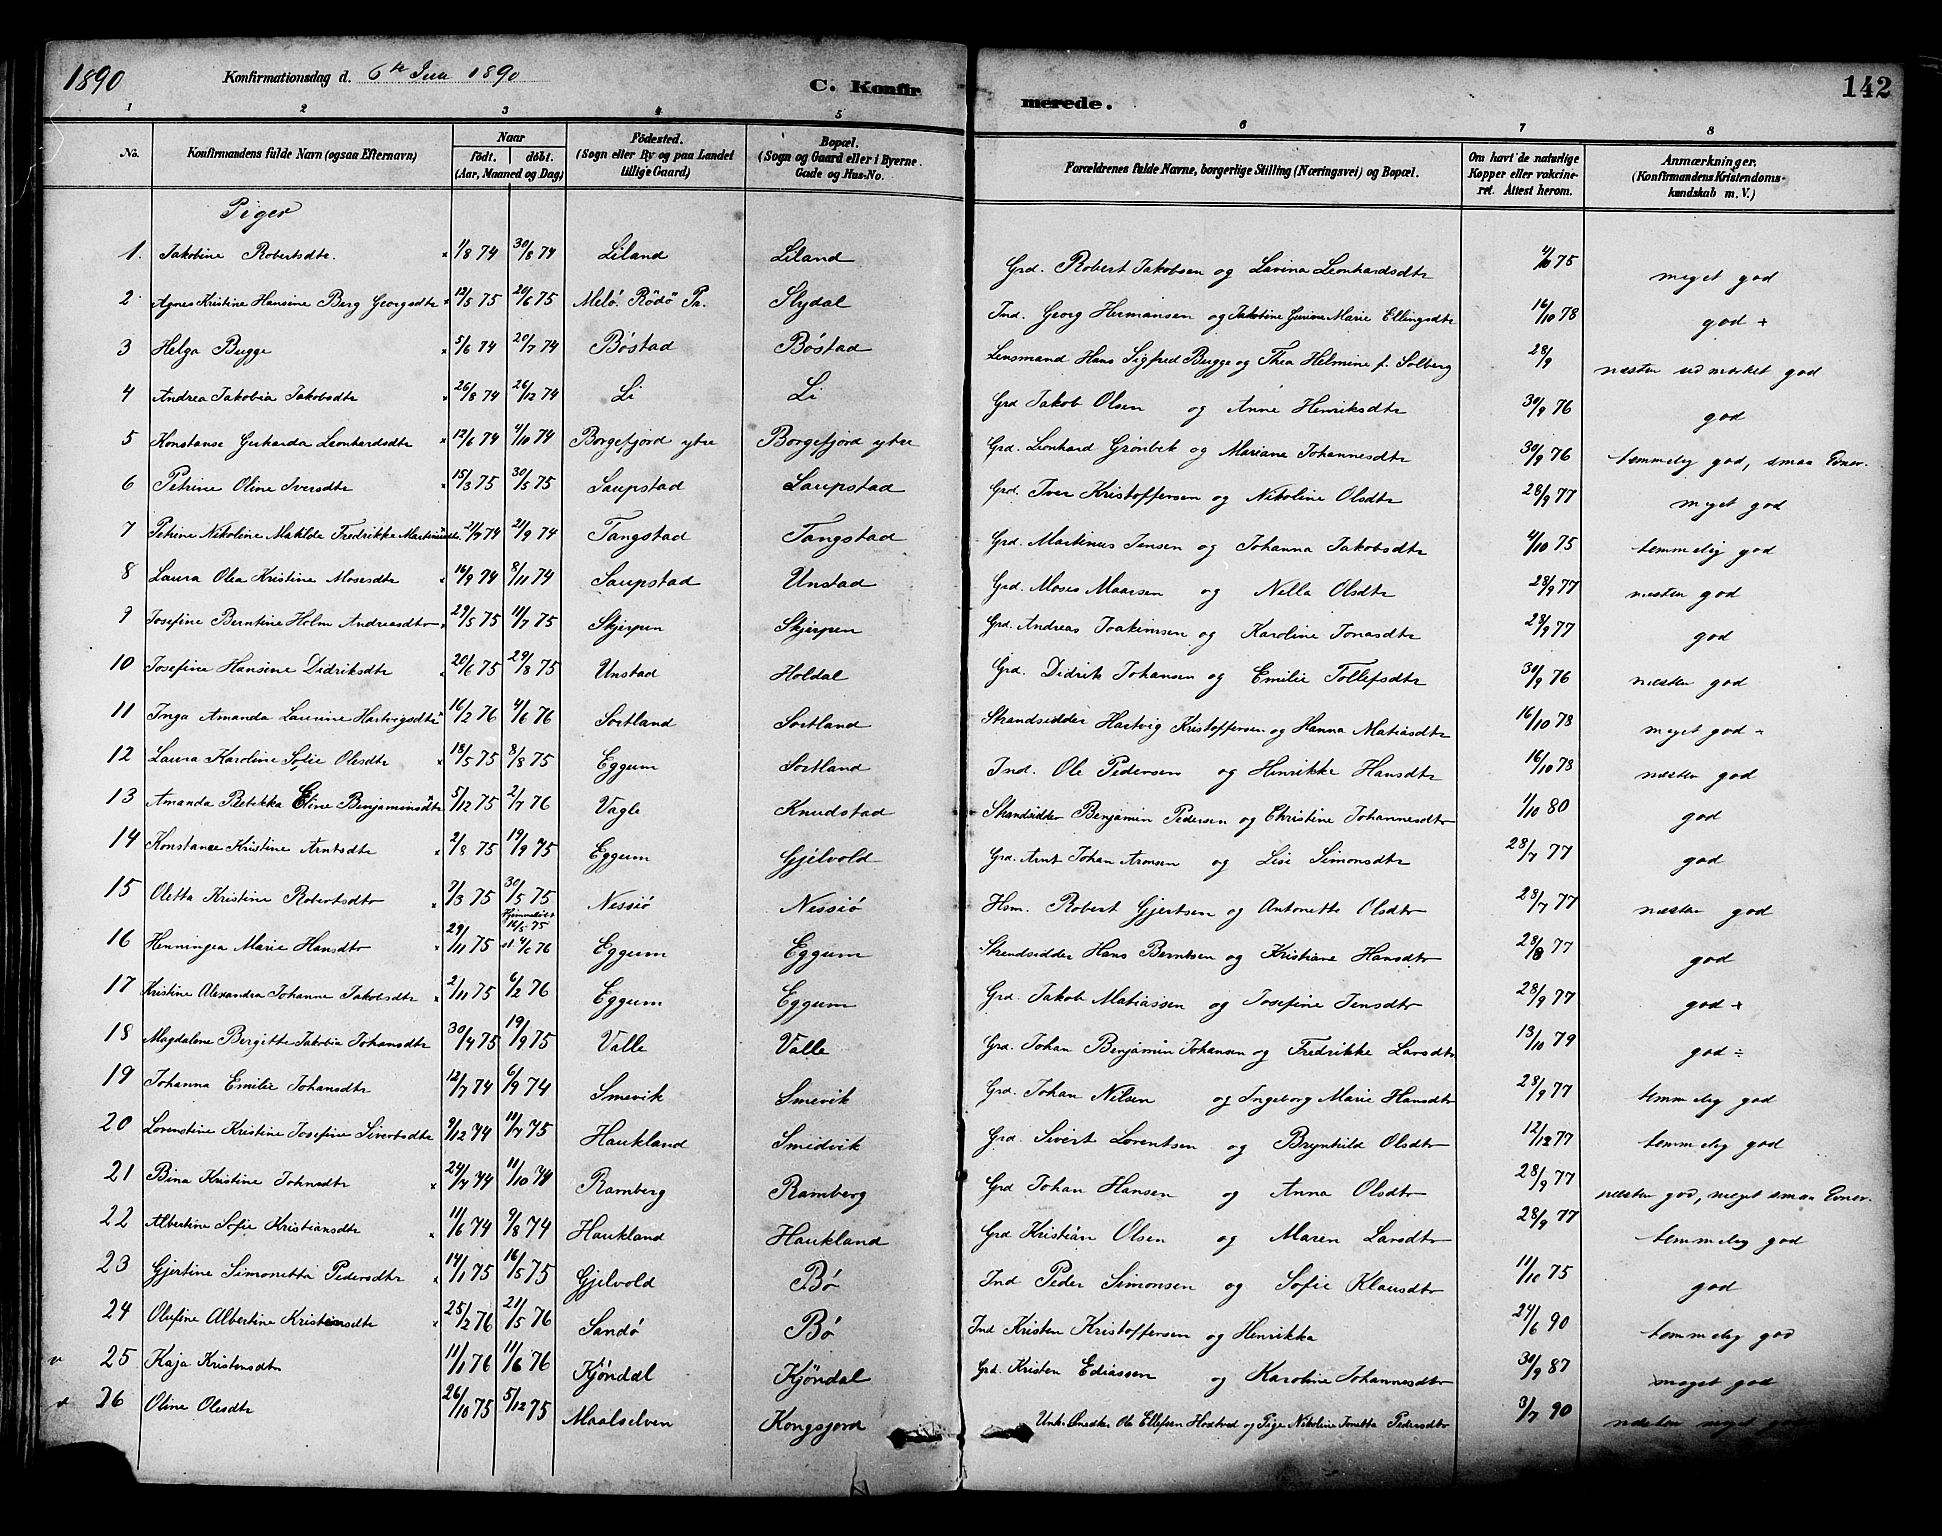 1890 Konfirmationsdag d. 6te Juli 1890 C. Konfirmerede. 142
1 2 3 4 5 6 7 8
No. Konfirmandens fulde Navn (ogsaa Efternavn) Naar født. døbt. (Aar, Maaned og Dag) Fødested. (Sogn eller By og paa Landet tillige Gaard) Bopæl. (Sogn og Gaard eller i Byerne Gade og Hus-No. Forældrenes fulde Navne, borgerlige Stilling (Næringsvei) og Bopæl. Om havt de naturlige Kopper eller vakcineret. Attest herom. Anmærkninger. (Konfirmandens Kristendomskundskab m. V.)
Piger
1. Jakobine Robertsdtr. 1/8 74 30/8 74 Liland Liland Grd. Robert Jakobsen og Lavina Leonhardsdtr 4/10 75 meget god
2 Agnes Kristine Hansine Berg Georgsdtr 12/5 75 20/6 75 Melö. Rödö Pr. Slydal Ind. Georg Hermansen og Jakobine Marie Ellingsdtr 16/10 78 god +
3 Helga Bugge 5/6 74 20/7 74 Bøstad Bøstad Lensmand Hans Sigfred Bugge og Thea Helmine f. Solberg 28/9 næsten udmærket god
4 Andrea Jakobia Jakobsdtr 26/8 74 26/12 74 Li Li Grd Jakob Olsen og Anne Henriksdtr 30/9 76 god
5 Konstanse Gerharda Leonhardsdtr 12/6 74 4/10 74 Borgefjord ytre Borgefjord ytre Grd. Leonhard Grønbek og Mariane Johannesdtr 30/9 76 temmelig god, smaa Evner.
6 Petrine Oline Iversdtr 15/3 75 30/5 75 Saupstad Saupstad Grd. Iver Kristoffersen og Nikoline Olsdtr 28/9 77 meget god
7 Petrine Nikoline Matilde Fredrikke Martinusdtr 21/7 74 21/9 74 Tangstad Tangstad Grd. Martinus Jensen og Johanna Jakobsdtr 4/10 75 temmelig god
8 Laura Olea Kristine Mosesdtr 16/9 74 8/11 74 Saupstad Unstad Grd. Moses Maarsen og Nella Olsdtr 28/9 77 næsten god
9 Josefine Berntine Holm Andreasdtr 29/5 75 11/7 75 Skjerpen Skjerpen Grd. Andreas Joakimsen og Karoline Jonasdtr 28/9 77 god
10 Josefine Hansine Didriksdtr 20/6 75 29/8 75 Unstad Holdal Grd. Didrik Johansen og Emilie Tollefsdtr 30/9 76 næsten god
11 Inga Amanda Laurine Hartvigsdtr 16/2 76 4/6 76 Sortland Sortland Strandsidder Hartvig Kristoffersen og Hanna Matiasdtr 16/10 78 meget god -
12 Laura Karoline Sofie Olesdtr 18/5 75 8/8 75 Eggum Sortland Ind. Ole Pedersen og Henrikke Hansdtr 16/10 78 næsten god
13 Amanda Rebekka Eline Benjaminsdtr 5/12 75 2/7 76 Vagle Knudstad Strandsidder Benjamin Pedersen og Christine Johannesdtr 1/10 80 god
14 Konstance Kristine Arntsdtr 2/8 75 19/9 75 Eggum Gjelvold Grd. Arnt Johan Aronsen og Lise Simonsdtr 28/7 77 god
15 Oletta Kristine Robertsdtr 7/3 75 30/5 75 Nessiø Nessiø Hsm. Robert Gjertsen og Antonette Olsdtr 28/7 77 næsten god
16 Henningea Marie Hansdtr 29/11 75 Hjemmedøbt 16/5 75 st. 4/6 76 Eggum Eggum Strandsidder Hans Berntsen og Kristiane Hansdtr 28/8 77 god
17 Kristine Alexandra Johanne Jakobsdtr 2/11 75 6/2 76 Eggum Eggum Grd. Jakob Matiassen og Josefine Jensdtr 28/9 77 god +
18 Magdalene Bergitte Jakobia Johansdtr 30/4 75 19/9 75 Valle Valle Grd. Johan Benjamin Johansen og Fredrikke Larsdtr 13/10 79 god ÷
19 Johanna Emilie Johansdtr 12/7 74 6/9 74 Smevik Smevik Grd. Johan Nilsen og Ingeborg Marie Hansdtr 28/9 77 temmelig god
20 Lorentine Kristine Josefine Sivertsdtr 9/12 74 11/7 75 Haukland Smedvik Grd. Sivert Lorentsen og Brynhild Olsdtr 12/12 77 temmelig god
21 Bina Kristine Johnsdtr 24/7 74 11/10 74 Ramberg Ramberg Grd Johan Hansen og Anna Olsdtr 28/9 77 næsten god, meget smaa Evner.
22 Albertine Sofie Kristiansdtr 11/6 74 9/8 74 Haukland Haukland Grd Kristian Olsen og Maren Larsdtr 28/9 77 temmelig god
23 Gjertine Simonetta Pedersdtr 14/1 75 16/5 75 Gjelvold Bø Ind Peder Simonsen og Sofie Klausdtr 11/10 75 god
24 Olufine Albertine Kristensdtr 25/2 76 21/5 76 Sandö Bø Ind Kristen Kristoffersen og Henrikka 24/6 90 temmelig god
25 Kaja Kristensdtr 11/1 76 11/6 76 Kjöndal Kjöndal Grd. Kristen Ediassen og Karoline Johannesdtr 30/9 87 meget god
26 Oline Olesdtr 26/10 75 5/12 75 Maalselven Kongsjord Unk. Snedker Ole Ellefsen Hoxtved og Pige Nikoline Jonetta Pedersdtr 3/7 90 næsten meget